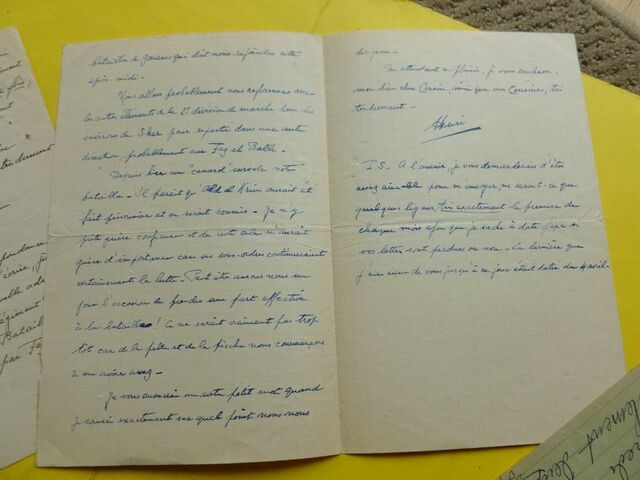 bataillon de zouaves qui doit nous rejoindre cette
après-midi.
Nous allons probablement nous reformer avec
les autres éléments de la 2e division de marche dans les
environs de Sker pour repartir dans une autre
direction, probablement sur Fez el Bali.
Depuis hier un "canard" survole notre
bataillon - Il parait qu'Abd el Krim aurait été
fait prisonnier et on serait soumis - Je n'y
prête guère confiance et du reste cela n'aurait
guère d'importance car ses sous-ordres continueraient
certainement la lutte. Peut être aurons nous un
jour l'occasion de prendre une part effective
à la bataille! Ce ne serait vraiment pas trop
tot car de la pelle et de la pioche nous commençons
à en avoir assez -
Je vous enverrai un autre petit mot quand
je saurai exactement sur quel point nous nous
dirigeons -
En attendant ce plaisir, je vous embrasse
mon bien cher Cousin, ainsi que vos Cousines, très
tendrement -
Henri
P.S. - A l'avenir, je vous demanderais d'être
assez aimable pour m'envoyer, ne serait-ce que
quelques lignes, très exactement le premier de
chaque mois afin que je sache à date fixe si
vos lettres sont perdues ou non - La dernière que
j'aie reçue de vous jusqu'à ce jour était datée du 4 avril -
Bataill
par Fez